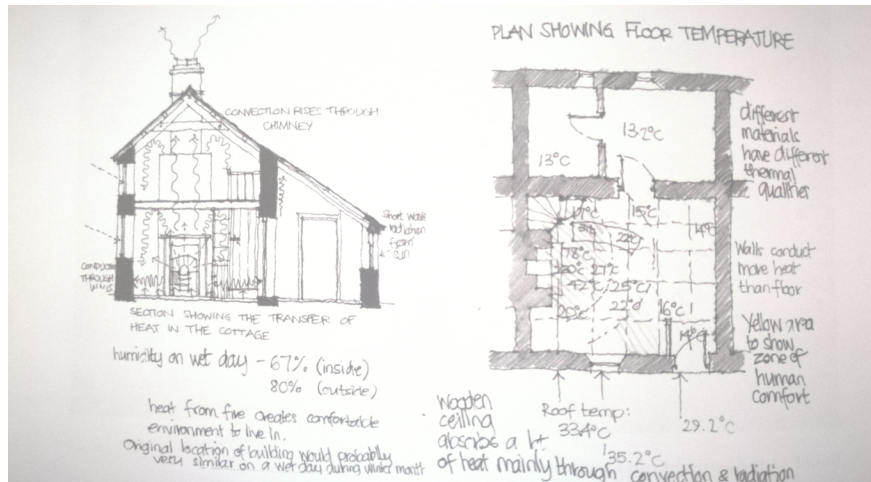 CONVECTION RISES THROUGH
CHIMNEY
Short Wave
radiation
from
sun
CONDUCTION
THROUGH
WALLS
SECTION SHOWING THE TRANSFER OF
HEAT IN THE COTTAGE
humidity on wet day - 67% (inside)
80% (outside)
heat from fire creates comfortable
environment to live in.
Original location of building would probably
very similar on a wet day during winter month
PLAN SHOWING FLOOR TEMPERATURE
13.2°C
13°C
17°C
15°C
14°C
78°C
27°C
42°C
25°C
22°C
16°C
20°C
14°C
different
materials
have different
thermal
qualities
Walls conduct
more heat
than floor
Yellow area
to show
zone of
human
comfort
Wooden
ceiling
absorbs a lot
of heat mainly through convection & radiation
Roof temp:
33.4°C
35.2°C
29.2°C